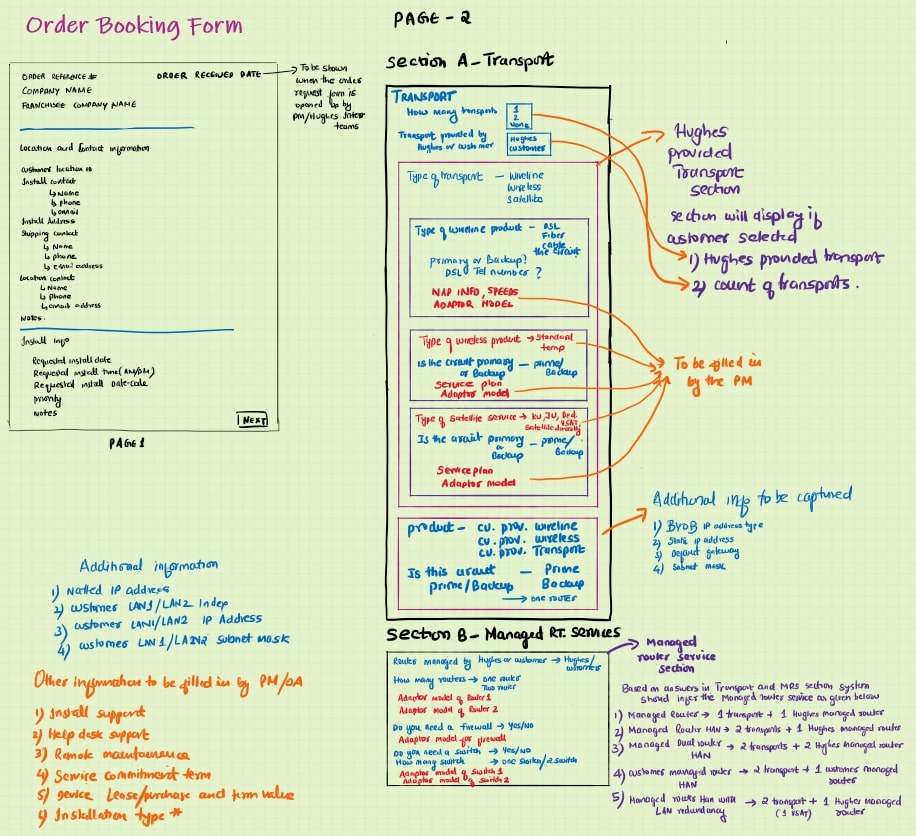 Order Booking Form
ORDER REFERENCE #
ORDER RECEIVED DATE
To be shown
when the order
request form is
opened up by
PM/Hughes Inter
teams
COMPANY NAME
FRANCHISEE COMPANY NAME
Location and Contact Information
Customer location ID
Install contact
↳ Name
↳ phone
↳ email
Install Address
Shipping contact
↳ Name
↳ phone
↳ email address
Location contact
↳ Name
↳ phone
↳ email address
Notes.
Install Info
Requested install date
Requested install time (AM/PM)
Requested install Date-code
priority
Notes
NEXT
PAGE 1
Additional information
1) Natted IP address
2) customer LAN1/LAN2 Indep
3) customer LAN1/LAN2 IP Address
4) customer LAN1/LAN2 Subnet Mask
Other information to be filled in by PM/OA
1) Install support
2) Help desk support
3) Remote maintainence
4) Service commitment term
5) Device Lease/purchase and term value
6) Installation type *
PAGE - 2
Section A - Transport
TRANSPORT
How many transports
1
2
None
Transport provided by
Hughes or customer
Hughes
customer
Type of transport — wireline
wireless
satellite
Type of wireline product - DSL
Fiber
cable
the circuit
Primary or Backup?
DSL Tel number?
NAP INFO, SPEEDS
ADAPTOR MODEL
Type of wireless product → Standard
temp
Is the circuit primary
or Backup - prime/
Backup
Service plan
Adaptor model
Type of Satellite service → KU, JU,
VSAT,
Satellite directly
Is the circuit primary
or
Backup - prime/
Backup
Service plan
Adaptor model
product - cu. prov. wireline
cu. prov. wireless
cu. prov. Transport
Is this circuit — Prime
prime/Backup Backup
→ one router
Hughes
provided
Transport
section
section will display if
customer selected
1) Hughes provided transport
2) count of transports.
To be filled in
by the PM
Additional info to be captured
1) BYOB IP address type
2) Static IP address
3) Default gateway
4) Subnet mask
Section B - Managed RT. Services
Router managed by Hughes or customer → Hughes/
customer
How many routers → one router
Two router
Adaptor model of Router 1
Adaptor model of Router 2
Do you need a firewall → Yes/No
Adaptor model for firewall
Do you need a switch → Yes/No
How many switch → one switch/2 switch
Adaptor model of switch 1
Adaptor model of switch 2
Managed
router service
section
Based on answers in Transport and MRS section system
should infer the Managed router service as given below
1) Managed Router → 1 transport + 1 Hughes managed router
2) Managed Router HAN → 2 transports + 1 Hughes managed router
3) Managed Dual router → 2 transports + 2 Hughes managed router
HAN
4) customer managed router → 2 transport + 1 customer managed
HAN router
5) Managed router Han with
LAN redundancy → 2 transport + 1 Hughes managed
(1 VSAT) router